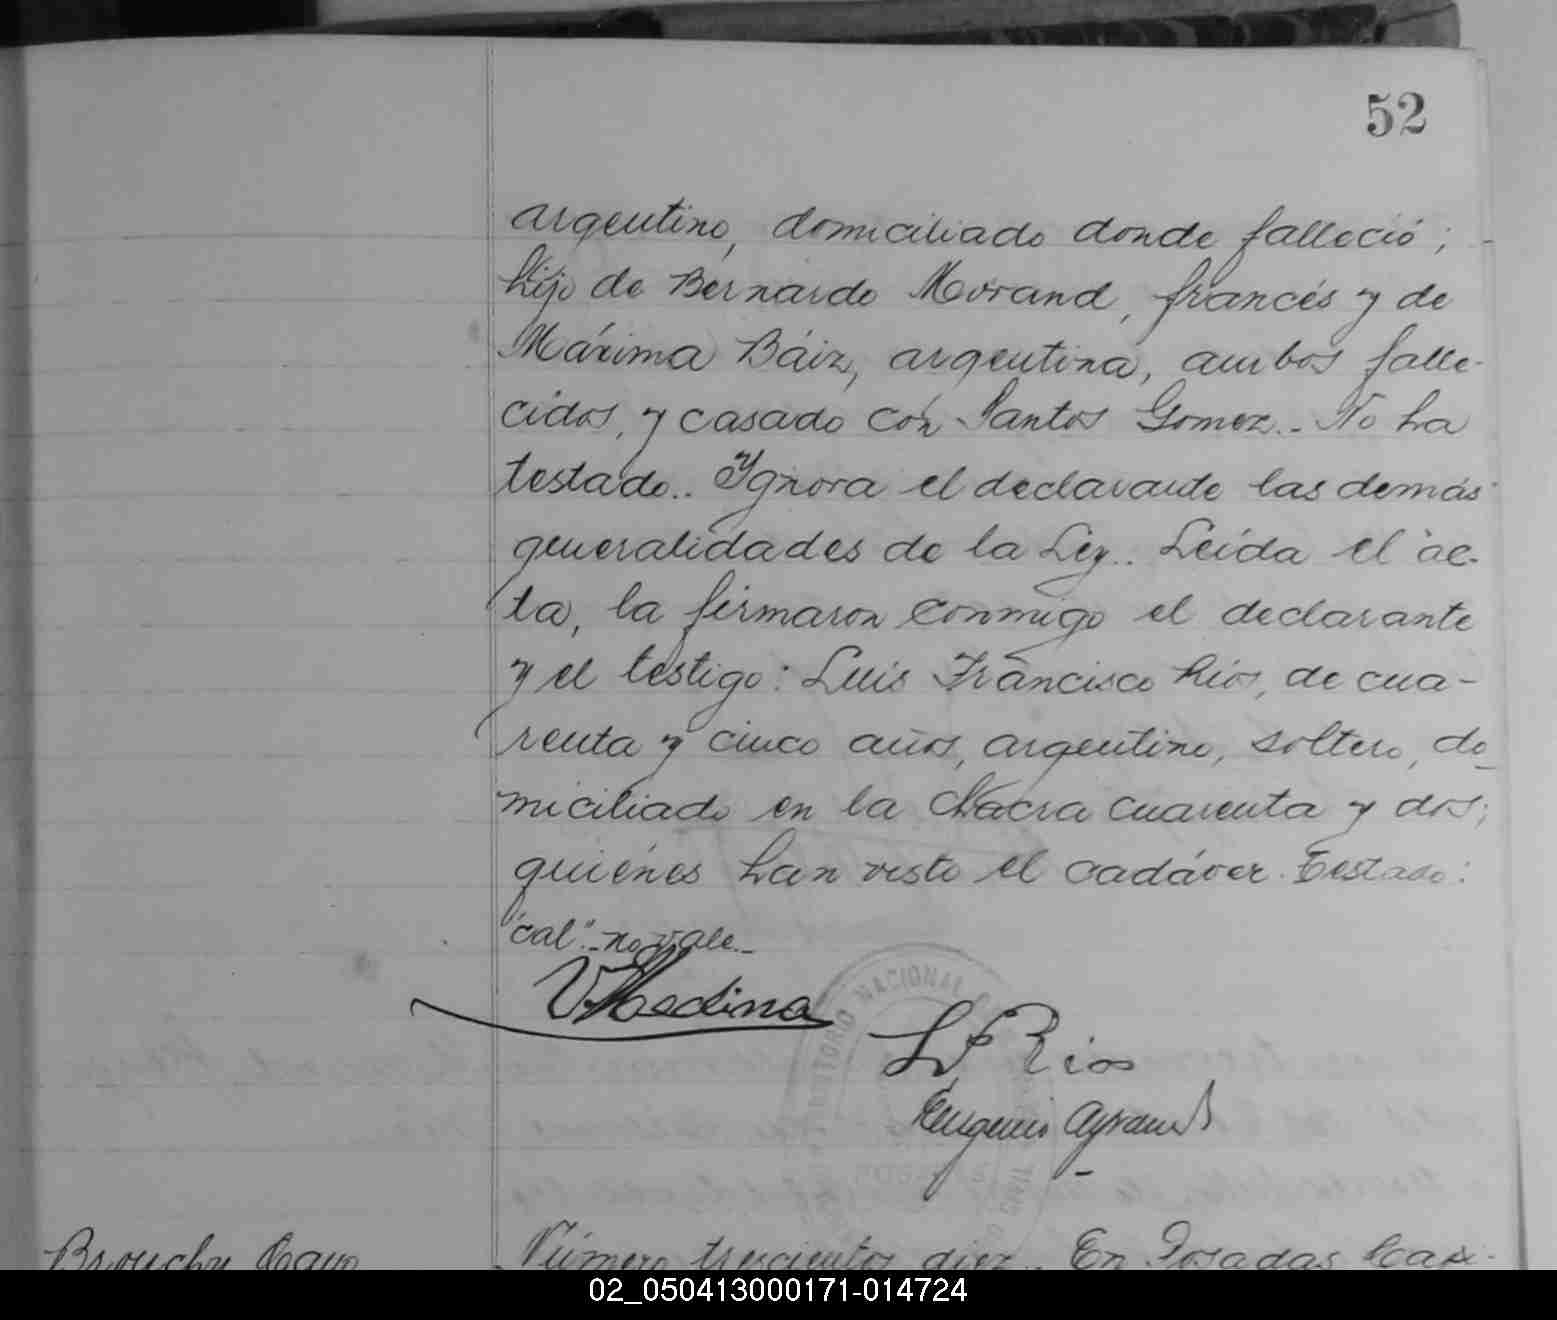 52
argentino, domiciliado donde falleció;
hijo de Bernardo Morand, francés y de
Máxima Báiz, argentina, ambos falle-
cidos, y casado con Santos Gomez.- No ha
testado.. Ygnora el declarante las demás
generalidades de la Ley.. Leída el ac-
ta, la firmaron conmigo el declarante
y el testigo: Luis Francisco Rios, de cua-
renta y cinco años, argentino, soltero, do-
miciliado en la Chacra cuarenta y dos;
quiénes han visto el cadáver. Testado:
"cal".-no vale.-
VMedina
TERRITORIO NACIONAL
L F Rios
Eugenio
Número trescientos diez.. En Posadas
02_050413000171-014724